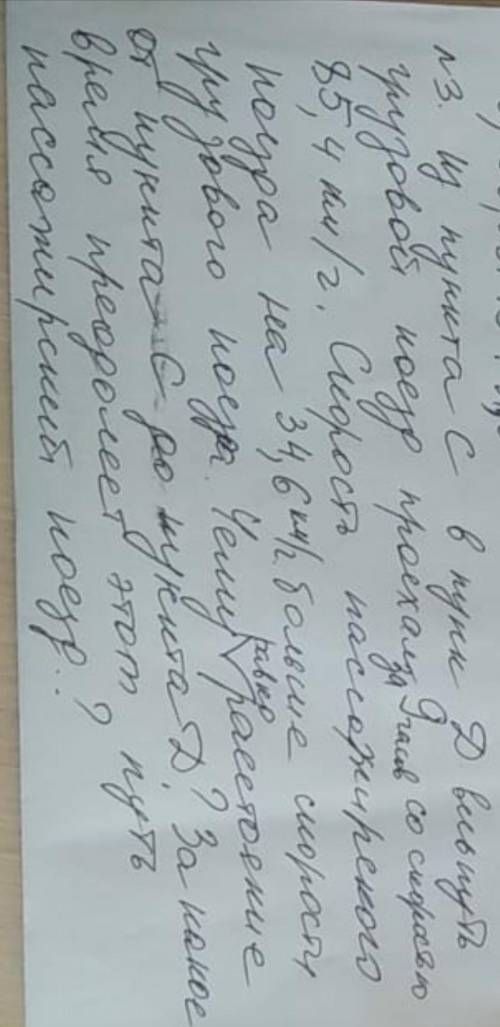 №3. Из пункта С в пунк Д весь путь
грузовой поезд проехал за 9 часов со скоростью
85,4 км/г. Скорость пассажирского
поезда на 34,6 км/г. больше скорости
грузового поезда. Чему равно расстояние
от пункта С до пункта Д? За какое
время преодолеет этот путь
пассажирский поезд..?